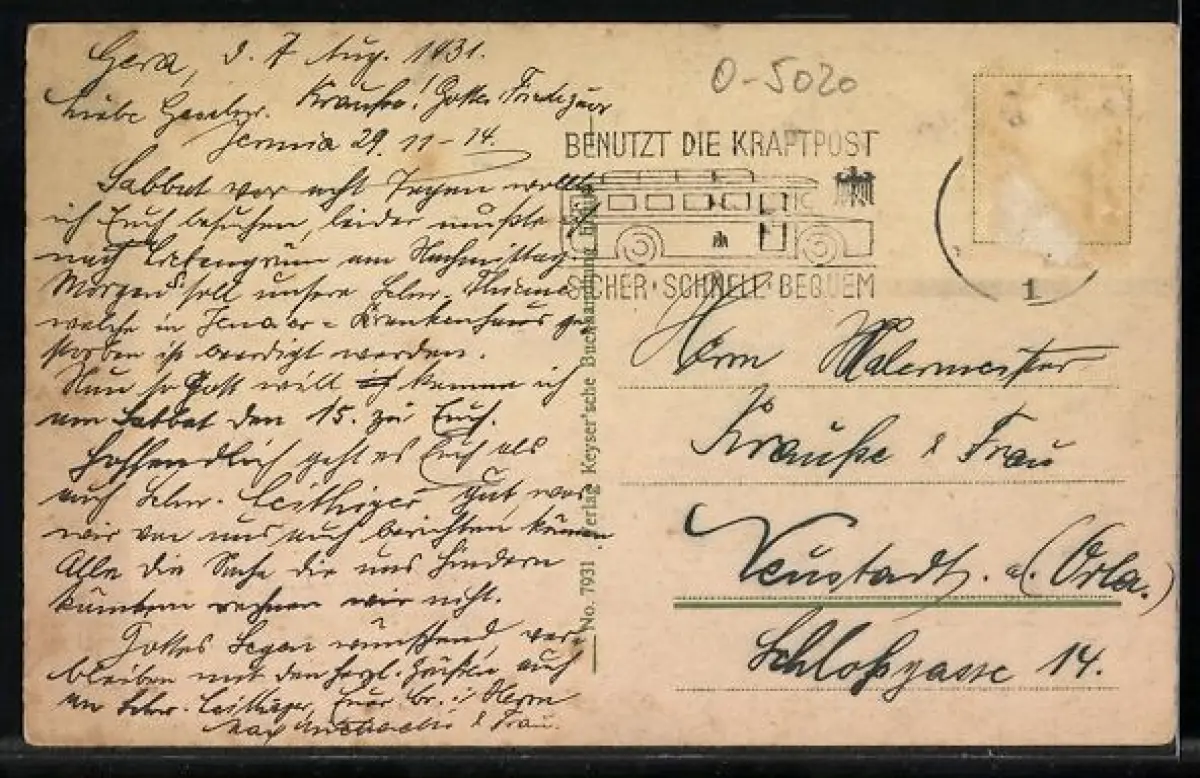 Gera, d. 7 Aug. 1931.
Liebe Geschw. Krauße! Gottes Friede zuvor
Jermia 29. 11-14.
Sabbat vor acht Tagen wollte
ich Euch besuchen, leider mußte
nach Liebengrün am Nachmittag
Morgen soll unsere Schw.
welche in Jena er = Krankenhaus ge
storben ist beerdigt werden.
Nun so Gott will komme ich
am Sabbat den 15. zu Euch.
Hoffendlich geht es Euch als
auch Schw. gut, was
wir von uns auch berichten können.
Alle die Sache die uns hindern
rechnen wir nicht.
Gottes Segen wünschend, ver-
bleiben mit den herzl. Grüßen auch
an Schw. Euer Br. i. Herrn
Max & Frau.
O-5020
BENUTZT DIE KRAFTPOST
SICHER · SCHNELL · BEQUEM
1
Herrn Malermeister
Krauße & Frau
Neustadt. a. (Orla.)
Schloßgasse 14.
No. 7931 Verlag Keyser'sche Buchhandlung